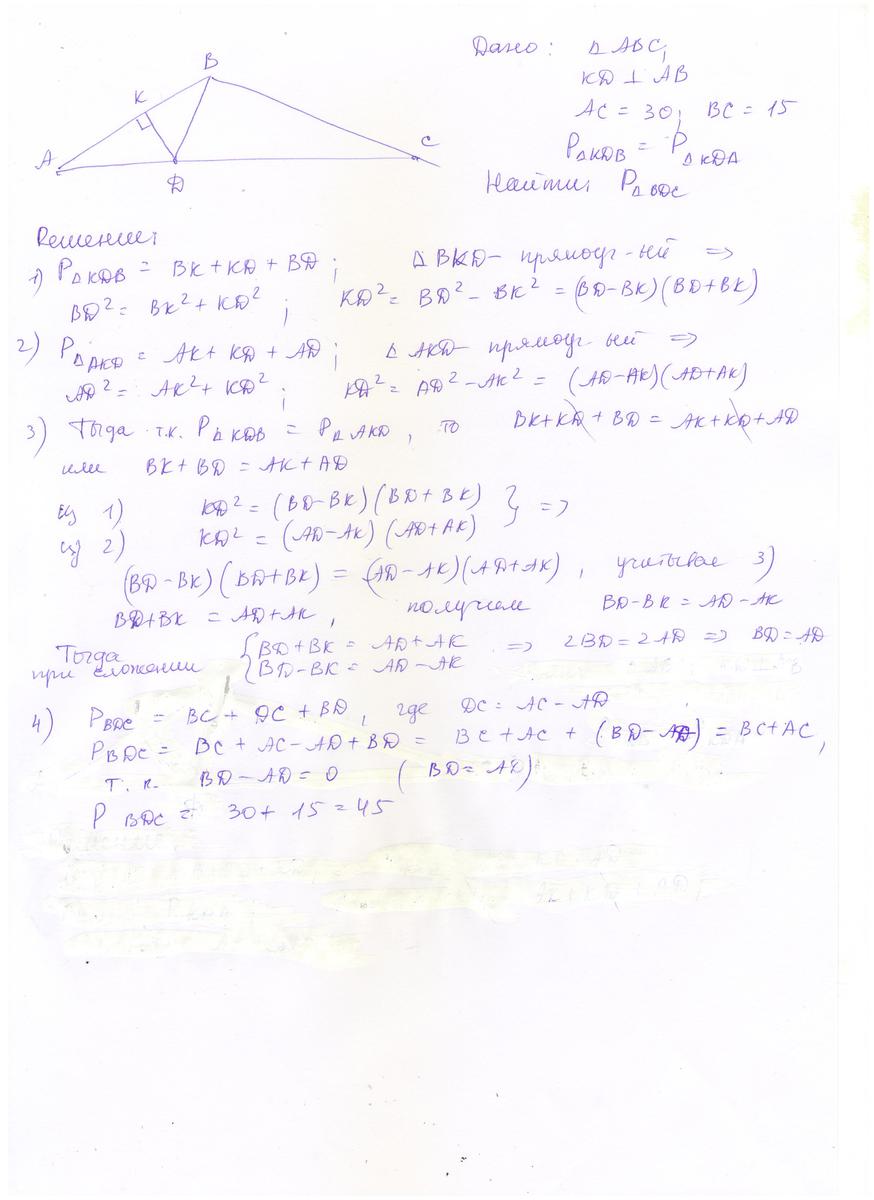 Дано: Δ ABC,
KD ⊥ AB
AC = 30; BC = 15
PΔKDB = PΔKDA
Найти: PΔBDC
B
K
A
D
C
Решение:
1) PΔKDB = BK + KD + BD; Δ BKD – прямоуг-ый =>
BD² = BK² + KD²; KD² = BD² – BK² = (BD–BK)(BD+BK)
2) PΔAKD = AK + KD + AD; Δ AKD – прямоуг-ый =>
AD² = AK² + KD²; KD² = AD² – AK² = (AD–AK)(AD+AK)
3) Тогда т.к. PΔKDB = PΔAKD, то BK+KD+BD = AK+KD+AD
или BK + BD = AK + AD
из 1) KD² = (BD–BK)(BD+BK) } =>
из 2) KD² = (AD–AK)(AD+AK)
(BD–BK)(BD+BK) = (AD–AK)(AD+AK), учитывая 3)
BD+BK = AD+AK, получаем BD–BK = AD–AK
Тогда при сложении { BD+BK = AD+AK => 2BD = 2AD => BD = AD
BD–BK = AD–AK
4) PBDC = BC + DC + BD, где DC = AC – AD
PBDC = BC + AC – AD + BD = BC + AC + (BD–AD) = BC + AC,
т.к. BD – AD = 0 (BD = AD)
PBDC = 30 + 15 = 45